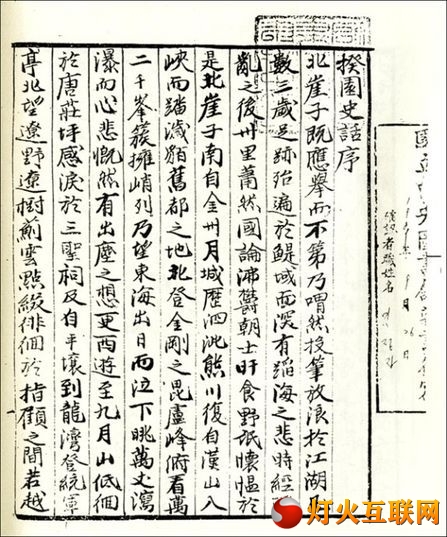 揆園史話序
北崖子既應擧而不第乃喟然投筆放浪於江湖凡
數三歲足跡殆遍於鯷域而深有蹈海之悲時經
亂之後州里蕭然國論沸鬱朝士旰食野氓懷慍於
是北崖子南自金州月城歷泗沘熊川復自漢山入
峽而踏濊貊舊都之地北登金剛之毘盧峰俯看萬
二千峯簇擁峭列乃望東海出日而泣下眺萬丈瀉
瀑而心悲慨然有出塵之想更西遊至九月山低徊
於唐莊坪感淚於三聖祠及自平壤到龍灣登統軍
亭北望遼野遼樹薊雲點綴徘徊於指顧之間若越
灯火互联网